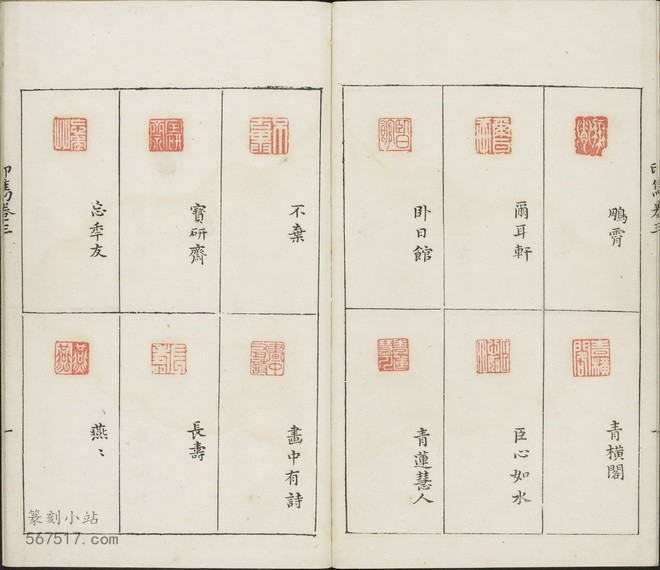 印雋卷三
鵬霄
爾耳軒
卧日館
青橫閣
臣心如水
青蓮慧人
不棄
寶研齋
忘秊友
畫中有詩
長壽
燕〻
印雋卷三
篆刻小站
567517.com